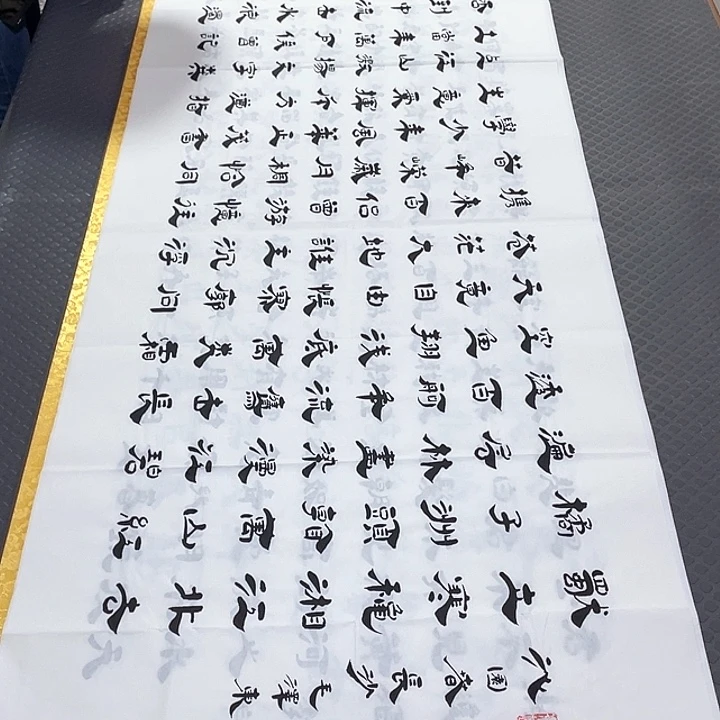 沁園春 長沙 毛澤東
獨立寒穐湘江北去
橘子洲頭看萬山紅
遍層林盡染漫江碧
透百舸爭流鷹击長
空魚翔淺底萬類霜
天競自由悵寥廓问
蒼茫大地誰主沉浮
携來百侣曾游憶往
昔崢嶸歲月稠恰同
學少年風華正茂書
生意氣揮斥方遒指
點江山激揚文字糞
土當年萬户侯曾記
否到中流击水浪遏